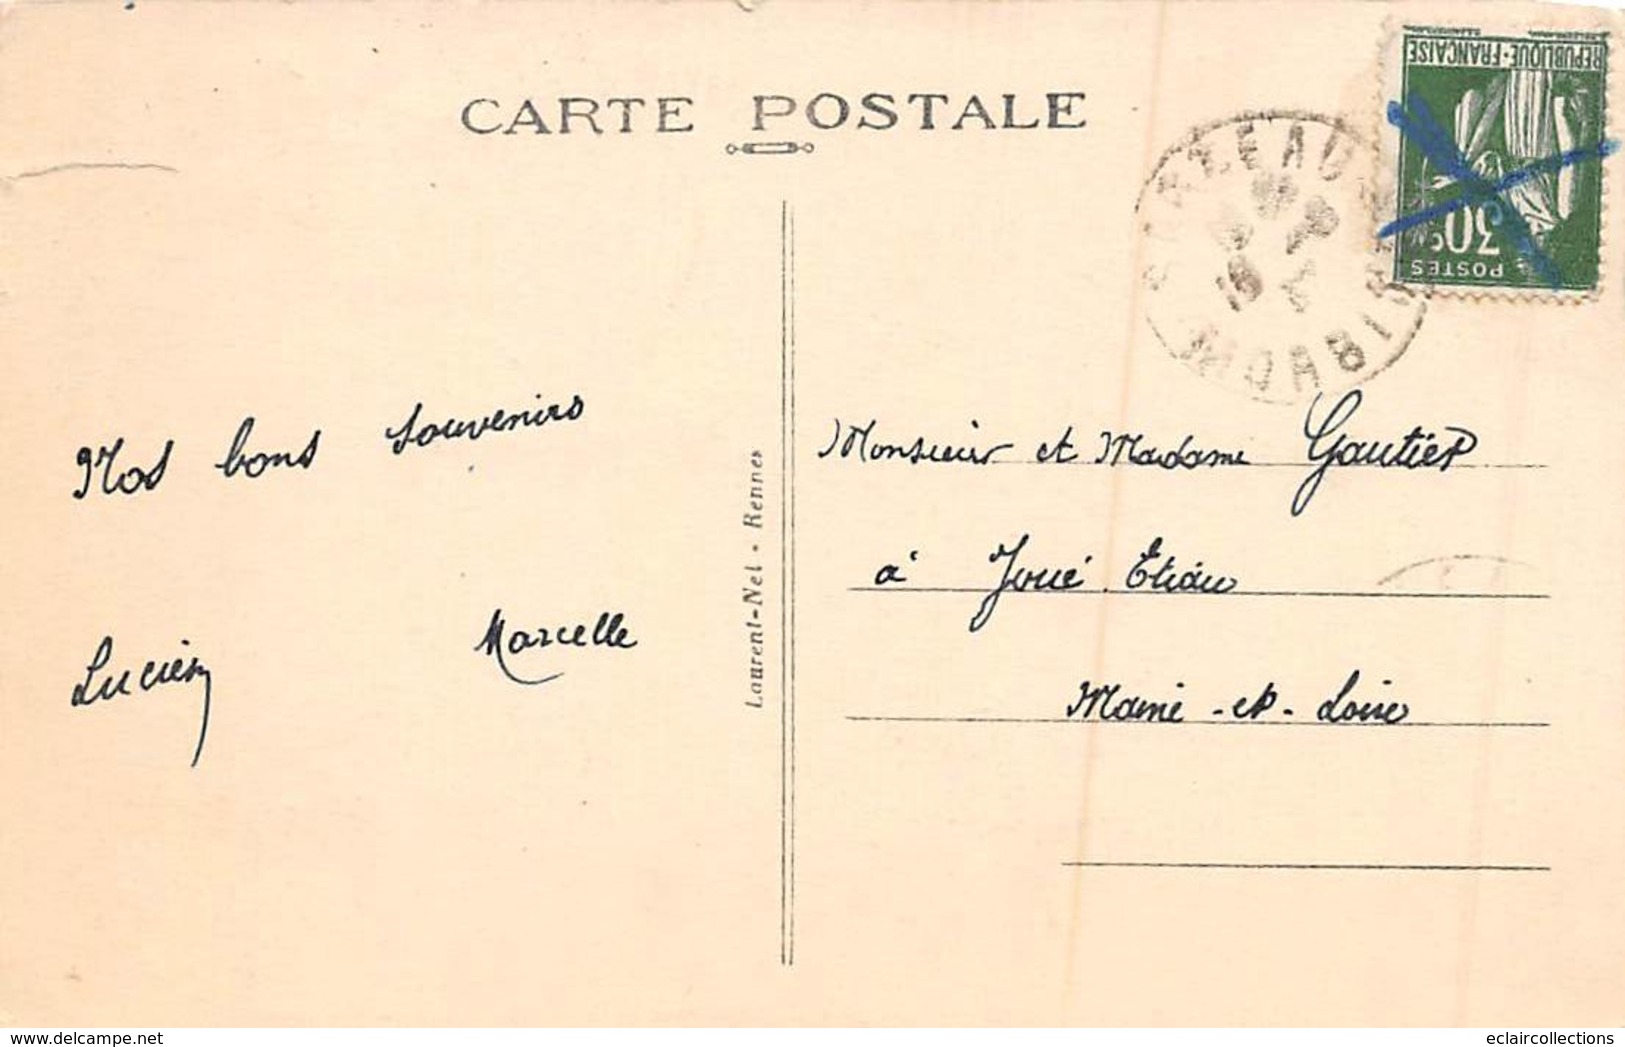 CARTE POSTALE
RÉPUBLIQUE-FRANÇAISE
30c
POSTES
SARZEAU
MORBIHAN
Nos bons souvenirs
Lucien Marcelle
Laurent-Nel - Rennes
Monsieur et Madame Gautier
à Joué Etiau
Maine-et-Loire
delcampe.net
eclaircollections